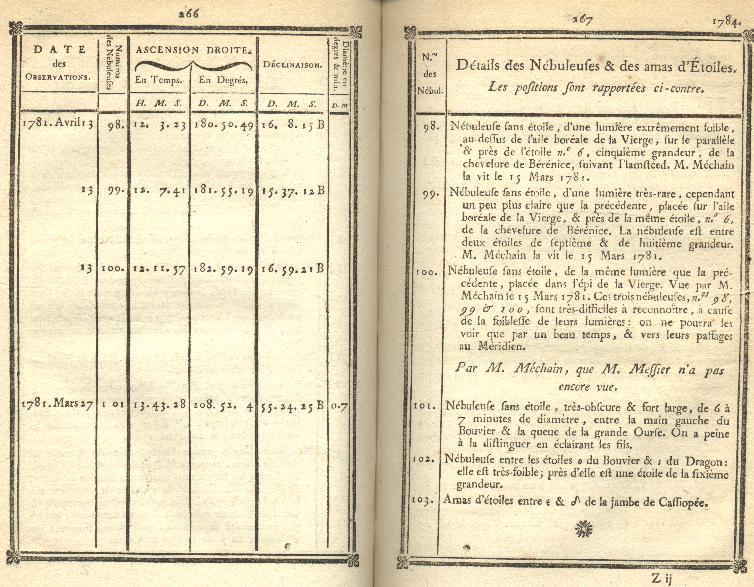 266
DATE
des
OBSERVATIONS.
Numéros
des Nébuleuses
ASCENSION DROITE.
En Temps.
En Degrés.
DÉCLINAISON.
Diametre en
degrés & min.
H. M. S.
D. M. S.
D. M. S.
D. M
1781. Avril 13 98. 12. 3. 23 180. 50. 49 16. 8. 15 B
13 99. 12. 7. 41 181. 55. 19 15. 37. 12 B
13 100. 12. 11. 57 182. 59. 19 16. 59. 21 B
1781. Mars 27 101 13. 43. 28 208. 52. 4 55. 24. 25 B 0. 7
267
1784.
N.os
des
Nébul.
Détails des Nébuleuſes & des amas d'Étoiles.
Les poſitions ſont rapportées ci-contre.
98. Nébuleuſe ſans étoile, d'une lumière extrêmement foible,
au-deſſus de l'aile boréale de la Vierge, ſur le parallèle
& près de l'étoile n.° 6, cinquième grandeur, de la
chevelure de Bérénice, ſuivant Flamſteed. M. Méchain
la vit le 15 Mars 1781.
99. Nébuleuſe ſans étoile, d'une lumière très-rare, cependant
un peu plus claire que la précédente, placée ſur l'aile
boréale de la Vierge, & près de la même étoile, n.° 6,
de la chevelure de Bérénice. La nébuleuſe eſt entre
deux étoiles de ſeptième & de huitième grandeur.
M. Méchain la vit le 15 Mars 1781.
100. Nébuleuſe ſans étoile, de la même lumière que la pré-
cédente, placée dans l'épi de la Vierge. Vue par M.
Méchain le 15 Mars 1781. Ces trois nébuleuſes, n.os 98,
99 & 100, ſont très-difficiles à reconnoître, à cauſe
de la foibleſſe de leurs lumières: on ne pourra les
voir que par un beau temps, & vers leurs paſſages
au Méridien.
Par M. Méchain, que M. Meſſier n'a pas
encore vue.
101. Nébuleuſe ſans étoile, très-obſcure & fort large, de 6 à
7 minutes de diamètre, entre la main gauche du
Bouvier & la queue de la grande Ourſe. On a peine
à la diſtinguer en éclairant les fils.
102. Nébuleuſe entre les étoiles ο du Bouvier & ι du Dragon:
elle eſt très-foible; près d'elle eſt une étoile de la ſixième
grandeur.
103. Amas d'étoiles entre ε & δ de la jambe de Caſſiopée.
Z ij